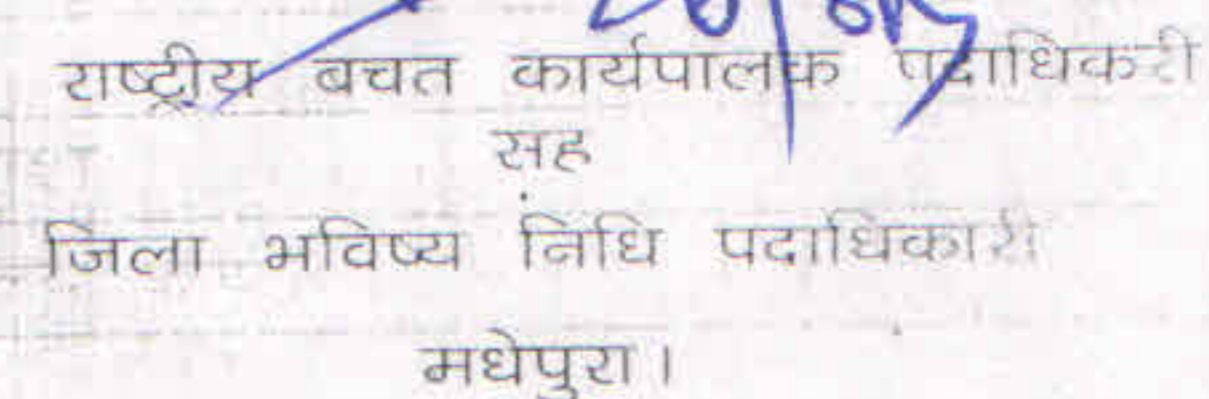 राष्ट्रीय बचत कार्यपालक पदाधिकारी
सह
जिला भविष्य निधि पदाधिकारी
मधेपुरा।